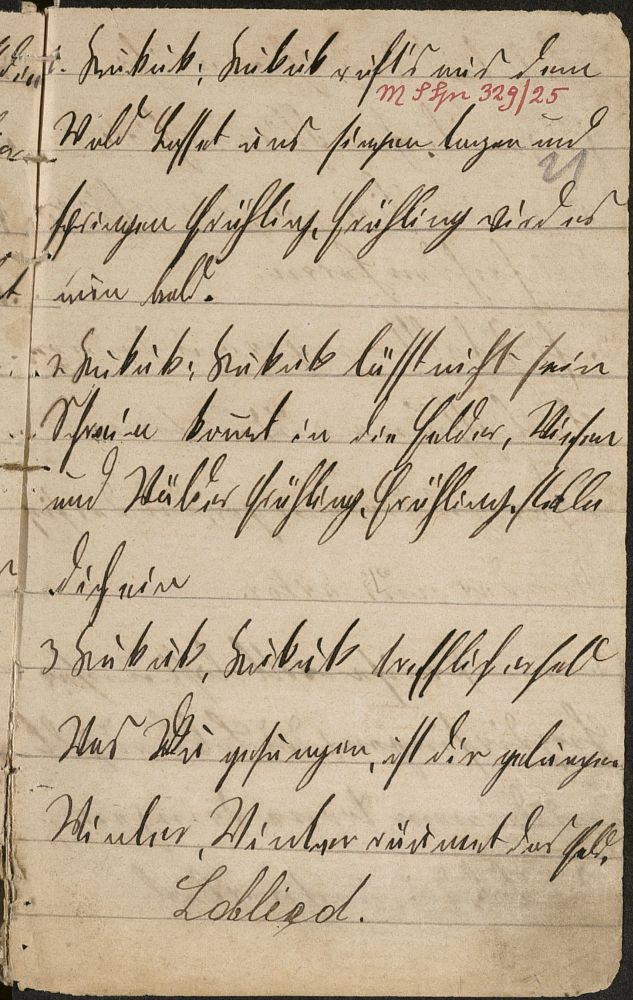 1. Kukuk; Kukuk ruft's aus dem
M S Spr 329/25
Wald Lasset uns singen tanzen und
21
springen Frühling, Frühling wird es
nun bald.
2 Kukuk; Kukuk läßt nicht sein
Schrein kommt in die Felder, Wiesen
und Wälder Frühling, Frühling, stelle
dich ein
3 Kukuk, Kukuk trefflicher held
Was Du gesungen, ist dir gelungen
Winter, Winter räumet das Feld.
Loblied.